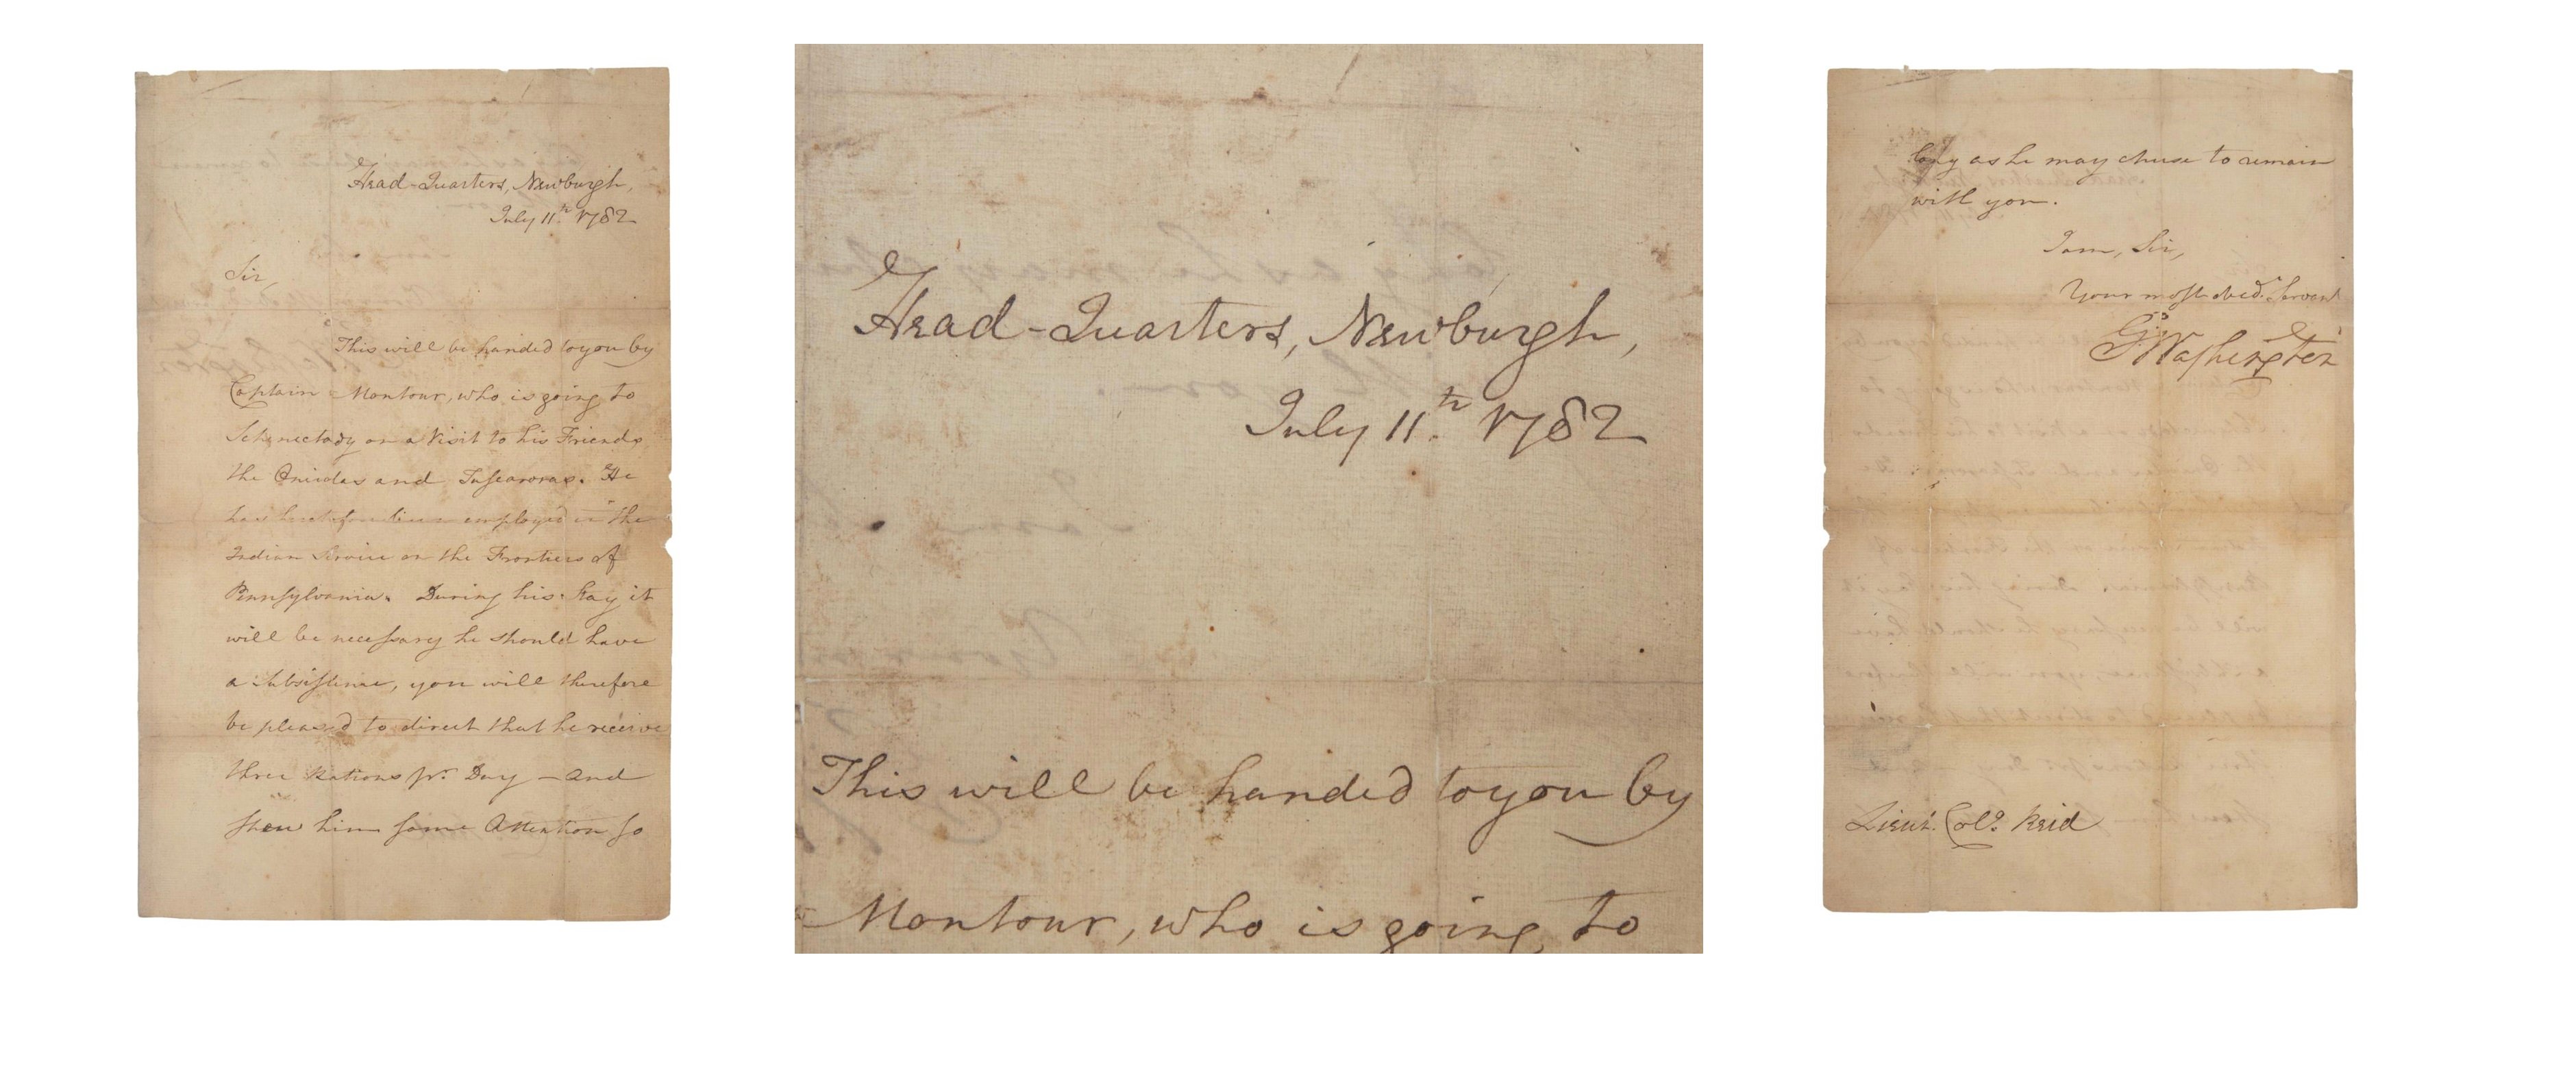 Head-Quarters, Newburgh,
July 11.th 1782
Sir,
This will be handed to you by
Captain Montour, who is going to
Schenectady on a Visit to his Friends
the Oneidas and Tuscaroras. He
has heretofore been employed in the
Indian Service on the Frontiers of
Pennsylvania. During his Stay it
will be necessary he should have
a Subsistence, you will therefore
be pleased to direct that he receive
three Rations pr. Day — and
shew him some Attention so
Head-Quarters, Newburgh,
July 11.th 1782
This will be handed to you by
Montour, who is going to
long as he may chuse to remain
with you.
I am, Sir,
Your most obed.t Servant
Go: Washington
Lieut. Colo. Reid